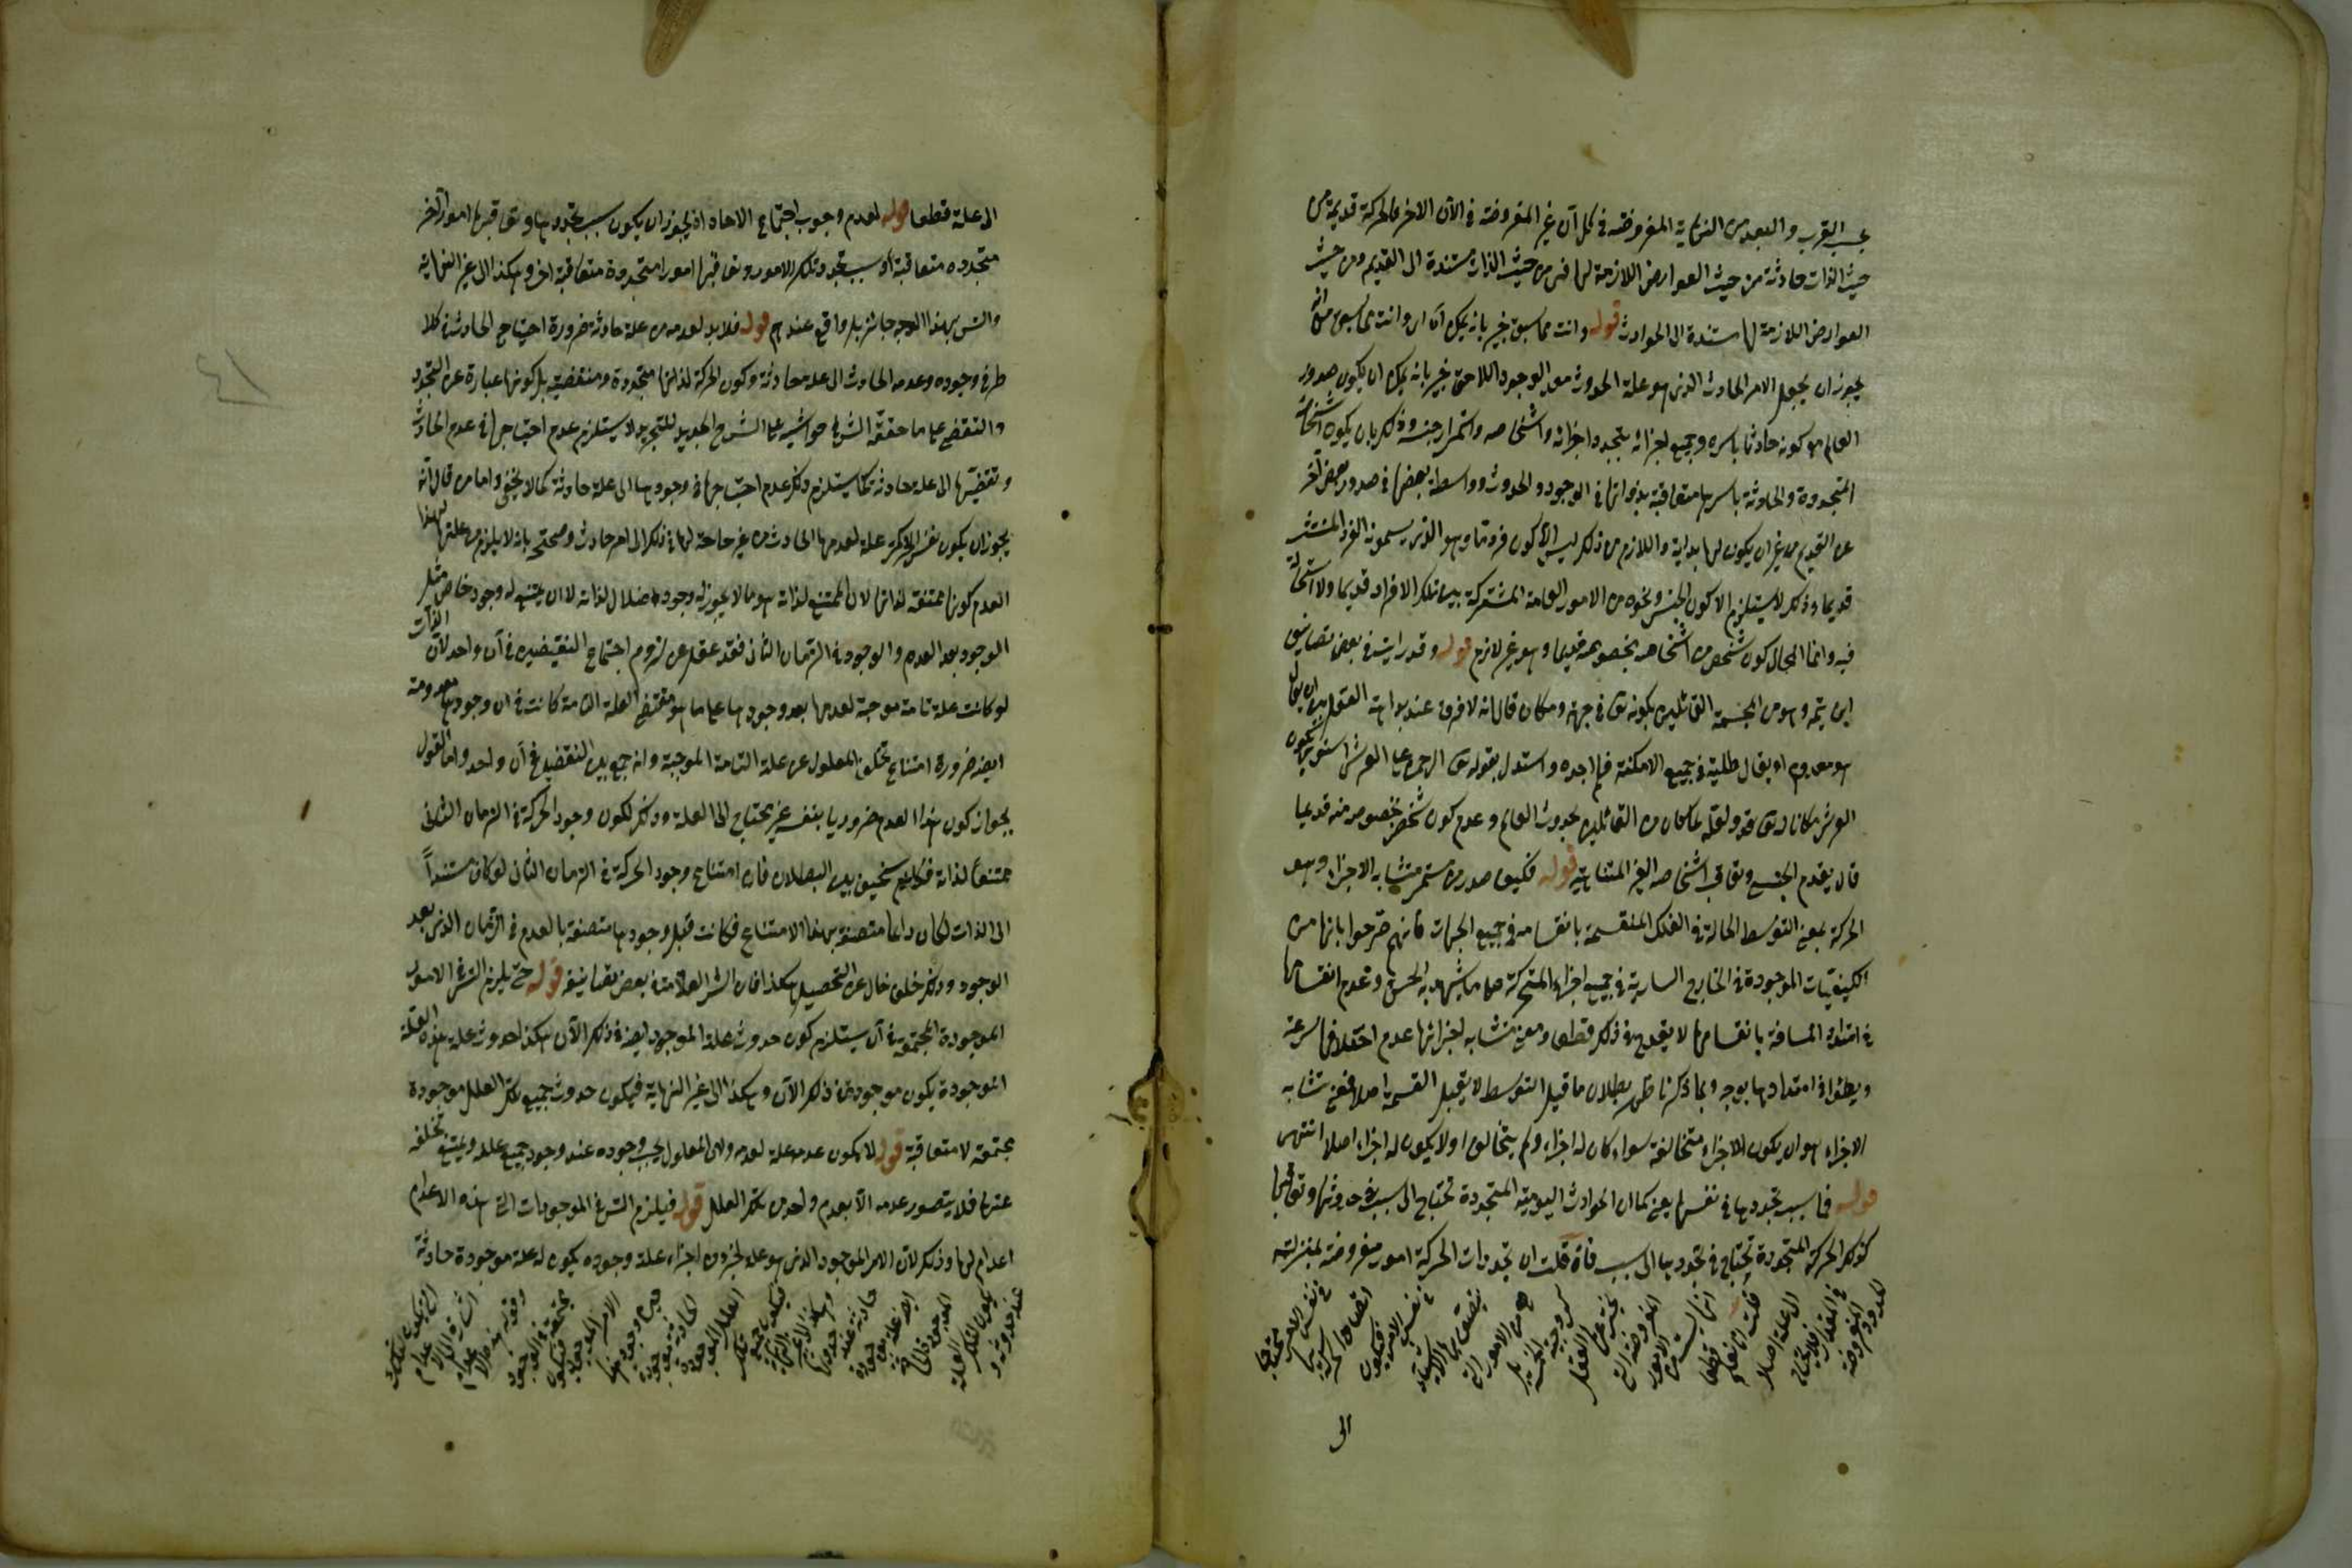 بحسب القرب والبعد من النهاية المفروضة في كل آن غير المفروضة في الآن الآخر فالحركة قديمة من
حيث الذات حادثة من حيث العوارض اللازمة لها فهي من حيث الذات مستندة الى القديم ومن حيث
العوارض اللازمة لها مستندة الى الحوادث قوله وانت مما سبق خبير بانه يمكن آه اى وانت مما سبق من انه
يجوز ان يجعل الامر الحادث الذى هو علة الحدوث معد الوجود اللاحق خبير بانه يمكن ان يكون صدور
العالم مع كونه حادثا باسره وجميع اجزائه بتجدد اجزائه واشخاصه واستمرار جنسه وذلك بان يكون اشخاصه
المتجددة والحادثة باسرها متعاقبة بذواتها في الوجود والحدوث وواسطة بعضها في صدور بعض آخر
عن القديم من غير ان يكون لها بداية واللازم من ذلك ليس الا كون فرد ما وهو الذى يسمونه الفرد المنتشر
قديما وذلك لا يستلزم الا كون الجنس ونحوه من الامور العامة المشتركة بين تلك الافراد قديما ولا استحالة
فيه وانما المحال كون شخص من اشخاصه بخصوصه قديما وهو غير لازم قوله وقد رايت في بعض تصانيف
ابن تيميه وهو من المجسمة القائلين بكونه تعالى في جهة ومكان قال انه لا فرق عند بداهة العقل بين ان يقال
هو معدوم او يقال طلبته في جميع الامكنة فلم اجده واستدل بقوله تعالى الرحمن على العرش استوى بكون
العرش مكانا له تعالى قوله ولعله لما كان من القائلين بحدوث العالم وعدم كون شخص بخصوصه منه قديما
قال بقدم الجنس وتعاقب اشخاصه الغير المتناهية قوله فكيف صدر من مستمر متشابه الاجزاء وهو
الحركة بمعنى التوسط الحالة في الفلك المنقسمة بانقسامه في جميع الجهات فانهم صرحوا بانها من
الكيفيات الموجودة في الخارج السارية في جميع اجزاء المتحركة على ما يشهد به الحس وعدم انقسامها
في امتداد المسافة بانقسامها لا يقدح في ذلك قطعا ومعنى تشابه اجزائها عدم اختلافها سرعة
وبطئا في امتدادها بوجه وبما ذكرنا ظهر بطلان ما قيل التوسط لا يقبل القسمة اصلا فمعنى تشابه
الاجزاء هو ان يكون الاجزاء متخالفة سواء كان له اجزاء ولم يتخالف او لا يكون له اجزاء اصلا انتهى
قوله فما سبب تجددها في نفسها يعنى كما ان الحوادث اليومية المتجددة تحتاج الى سبب في حدوثها وتعاقبها
كذلك الحركة المتجددة تحتاج في تجددها الى سبب فان قلت ان تجددات الحركة امور مفروضة بمنزلة
الحدود المفروضة
في المقدار فلا يحتاج
الى علة اصلا
قلت انا نعلم
قطعا
الى
الى علة قطعا قوله لعدم وجوب اجتماع الآحاد اذ يجوز ان يكون سبب تجددها وتعاقبها امورا اخر
متجددة متعاقبة وسبب تجدد تلك الامور وتعاقبها امورا متجددة متعاقبة اخر وهكذا الى غير النهاية
والتس بهذا الوجه جائز بل واقع عندهم قوله فلا بد لعدمه من علة حادثة ضرورة احتياج الحادث في كلا
طرفي وجوده وعدمه الحادث الى علة حادثة وكون الحركة لذاتها متجددة ومنقضية بل كونها عبارة عن التجدد
والتقضى على ما حققه الش في حواشيه على الشرح الجديد للتجريد لا يستلزم عدم احتياجها في عدم الحادث
وتقضيها الى علة حادثة كما لا يستلزم ذلك عدم احتياجها في وجودها الى علة حادثة كما لا يخفى واما من قال انه
يجوز ان يكون نفس الحركة علة لعدمها الحادث من غير حاجة لها في ذلك الى امر حادث وصححه بانه لا يلزم من علتها لهذا
العدم كونها ممتنعة لذاتها لان الممتنع لذاته هو ما لا يجوز له وجود اصلا لذاته لا ان يمتنع له وجود خاص مثل
الوجود بعد العدم والوجود في الزمان الثانى فقد غفل عن لزوم اجتماع النقيضين في آن واحد لان الذات
لو كانت علة تامة موجبة لعدمها بعد وجودها على ما هو مقتضى العلة التامة كانت في آن وجودها معدومة
ايضا ضرورة امتناع تخلف المعلول عن علته التامة الموجبة وانه جمع بين النقيضين في آن واحد واما القول
بجواز كون هذا العدم ضروريا بنفسه غير محتاج الى العلة وذلك لكون وجود الحركة في الزمان الثانى
ممتنعا لذاته فكلام سخيف بين البطلان فان امتناع وجود الحركة في الزمان الثانى لو كان مستندا
الى الذات لكان دائما متصفة بهذا الامتناع فكانت قبل وجودها متصفة بالعدم في الزمان الذى بعد
الوجود وذلك خلف خال عن التحصيل هكذا افاد الش العلامة في بعض تصانيفه قوله حتى يلزم التس في الامور
الموجودة المجتمعة في آن يستلزم كون حدوث علة الموجود ايضا في ذلك الآن هكذا حدوث علة هذه العلة
الموجودة يكون موجودة في ذلك الآن وهكذا الى غير النهاية فيكون حدوث جميع تلك العلل موجودة
مجتمعة لا متعاقبة قوله لا يكون عدمه علة لعدمه ولان المعلول يجب وجوده عند وجود جميع علله ويمتنع تخلفه
عنها فلا يتصور عدمه الا بعدم واحد من تلك العلل قوله فيلزم التس في الموجودات التى هذه الاعدام
اعدام لها وذلك لان الامر الموجود الذى هو علة لجزء من اجزاء علة وجوده يكون له علة موجودة حادثة
عند حدوثه و
يكون لتلك العلة
الموجودة الحادثة
ايضا علة موجودة
حادثة عند حدوثها
وهكذا الى غير النهاية
فيكون جميع تلك
العلل الموجودة